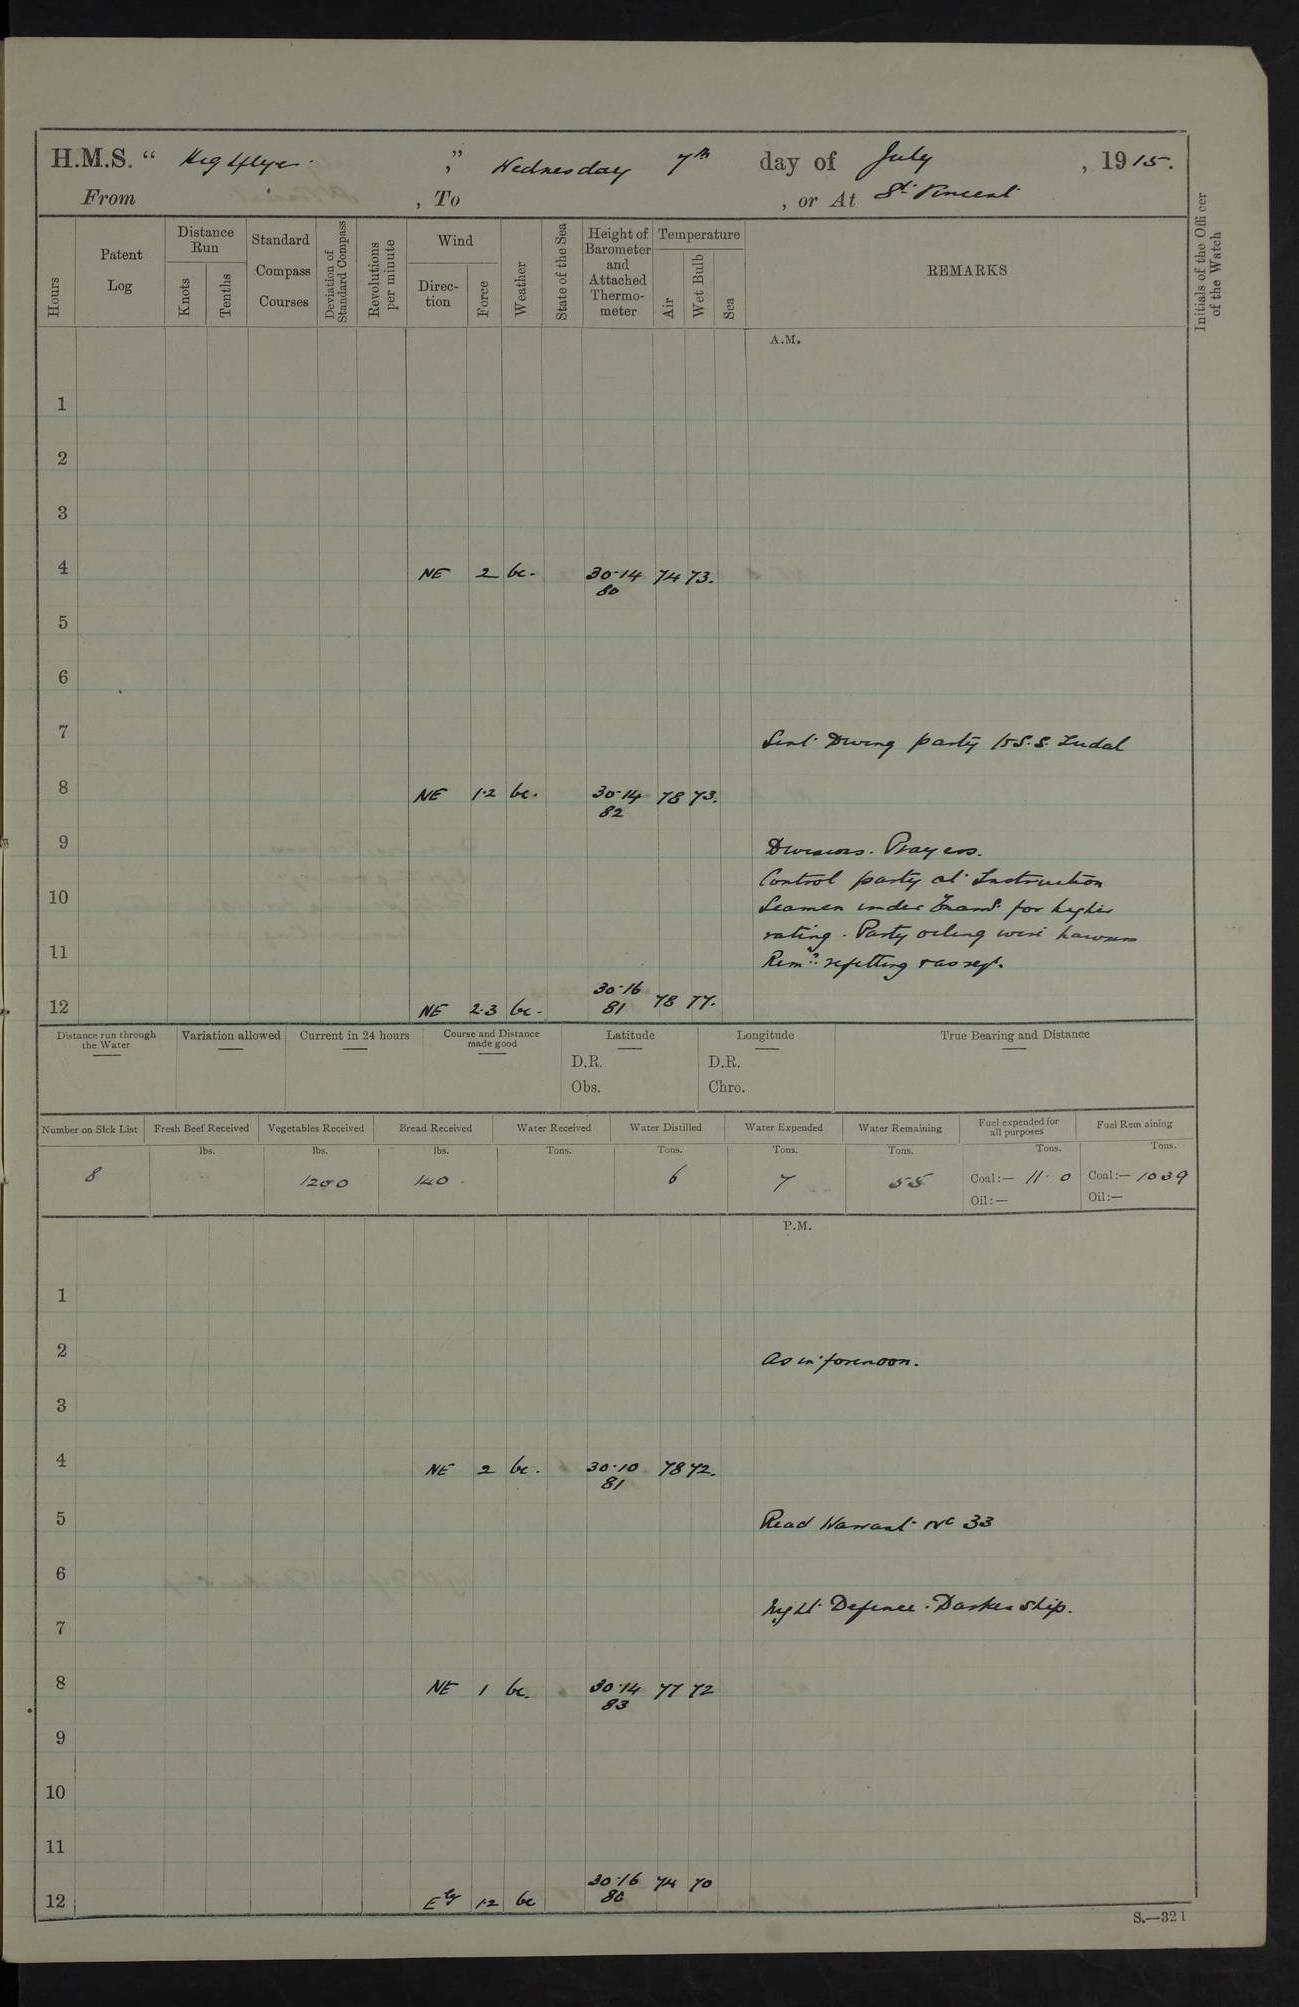 H.M.S. " Highflyer. ", Wednesday 7th day of July, 1915.
From , To , or At St. Vincent
Hours Patent Log Distance Run Knots Tenths Standard Compass Courses Deviation of Standard Compass Revolutions per minute Wind Direction Force Weather State of the Sea Height of Barometer and Attached Thermometer Temperature Air Wet Bulb Sea REMARKS Initials of the Officer of the Watch
A.M.
1
2
3
4 NE 2 bc. 30.14 74 73.
80
5
6
7 Sent Diving party to S.S. Tudal
8 NE 1.2 bc. 30.14 78 73.
82
9 Divisions. Prayers.
Control party at Instruction
10 Seamen under Examn. for higher
rating. Party oiling wire hawsers
11 Remr. refitting & as reqt.
12 NE 2.3 bc. 30.16 78 77.
81
Distance run through the Water Variation allowed Current in 24 hours Course and Distance made good Latitude Longitude True Bearing and Distance
D.R. D.R.
Obs. Chro.
Number on Sick List Fresh Beef Received Vegetables Received Bread Received Water Received Water Distilled Water Expended Water Remaining Fuel expended for all purposes Fuel Remaining
lbs. lbs. lbs. Tons. Tons. Tons. Tons. Tons. Tons.
8 1200 140 6 7 55 Coal:— 11.0 Coal:— 1039
Oil:— Oil:—
P.M.
1
2 As in forenoon.
3
4 NE 2 bc. 30.10 78 72.
81
5 Read Warrant No 33
6
Night Defence. Darken Ship.
7
8 NE 1 bc. 30.14 77 72
83
9
10
11
12 Ely 1.2 bc 30.16 74 70
80
S.—321